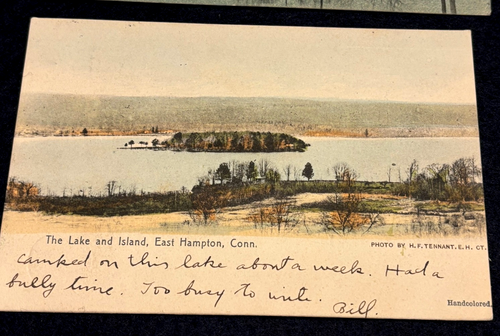 The Lake and Island, East Hampton, Conn.
PHOTO BY H.F. TENNANT. E.H. CT.
camped on this lake about a week. Had a
bully time. Too busy to write.
Bill.
Handcolored.